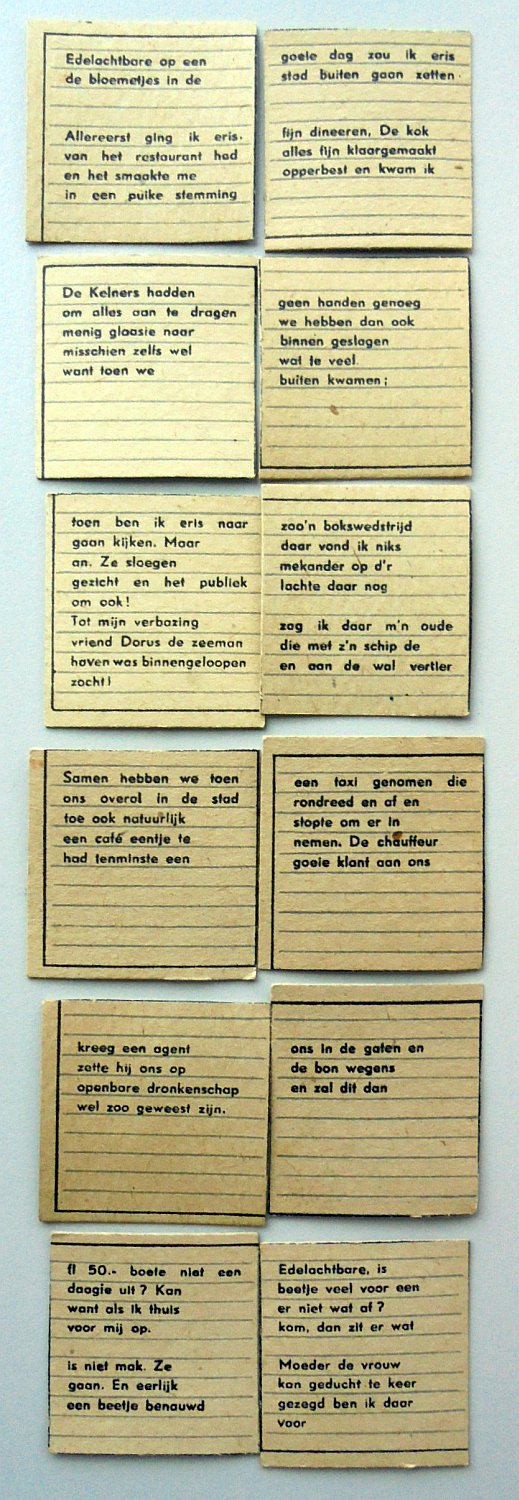 Edelachtbare op een goeie dag zou ik eris
de bloemetjes in de stad buiten gaan zetten.
Allereerst ging ik eris. fijn dineeren, De kok
van het restaurant had alles fijn klaargemaakt
en het smaakte me opperbest en kwam ik
in een puike stemming
De Kelners hadden geen handen genoeg
om alles aan te dragen we hebben dan ook
menig glaasie naar binnen geslagen
misschien zelfs wel wat te veel.
want toen we buiten kwamen;
toen ben ik eris naar zoo'n bokswedstrijd
gaan kijken. Maar daar vond ik niks
an. Ze sloegen mekander op d'r
gezicht en het publiek lachte daar nog
om ook!
Tot mijn verbazing zag ik daar m'n oude
vriend Dorus de zeeman die met z'n schip de
haven was binnengeloopen en aan de wal vertier
zocht!
Samen hebben we toen een taxi genomen die
ons overal in de stad rondreed en af en
toe ook natuurlijk stopte om er in
een café eentje te nemen. De chauffeur
had tenminste een goeie klant aan ons
kreeg een agent ons in de gaten en
zette hij ons op de bon wegens
openbare dronkenschap en zal dit dan
wel zoo geweest zijn.
fl 50.- boete niet een Edelachtbare, is
daagie uit? Kan beetje veel voor een
want als ik thuis er niet wat af?
voor mij op. kom, dan zit er wat
is niet mak. Ze Moeder de vrouw
gaan. En eerlijk kan geducht te keer
een beetje benauwd gezegd ben ik daar
voor